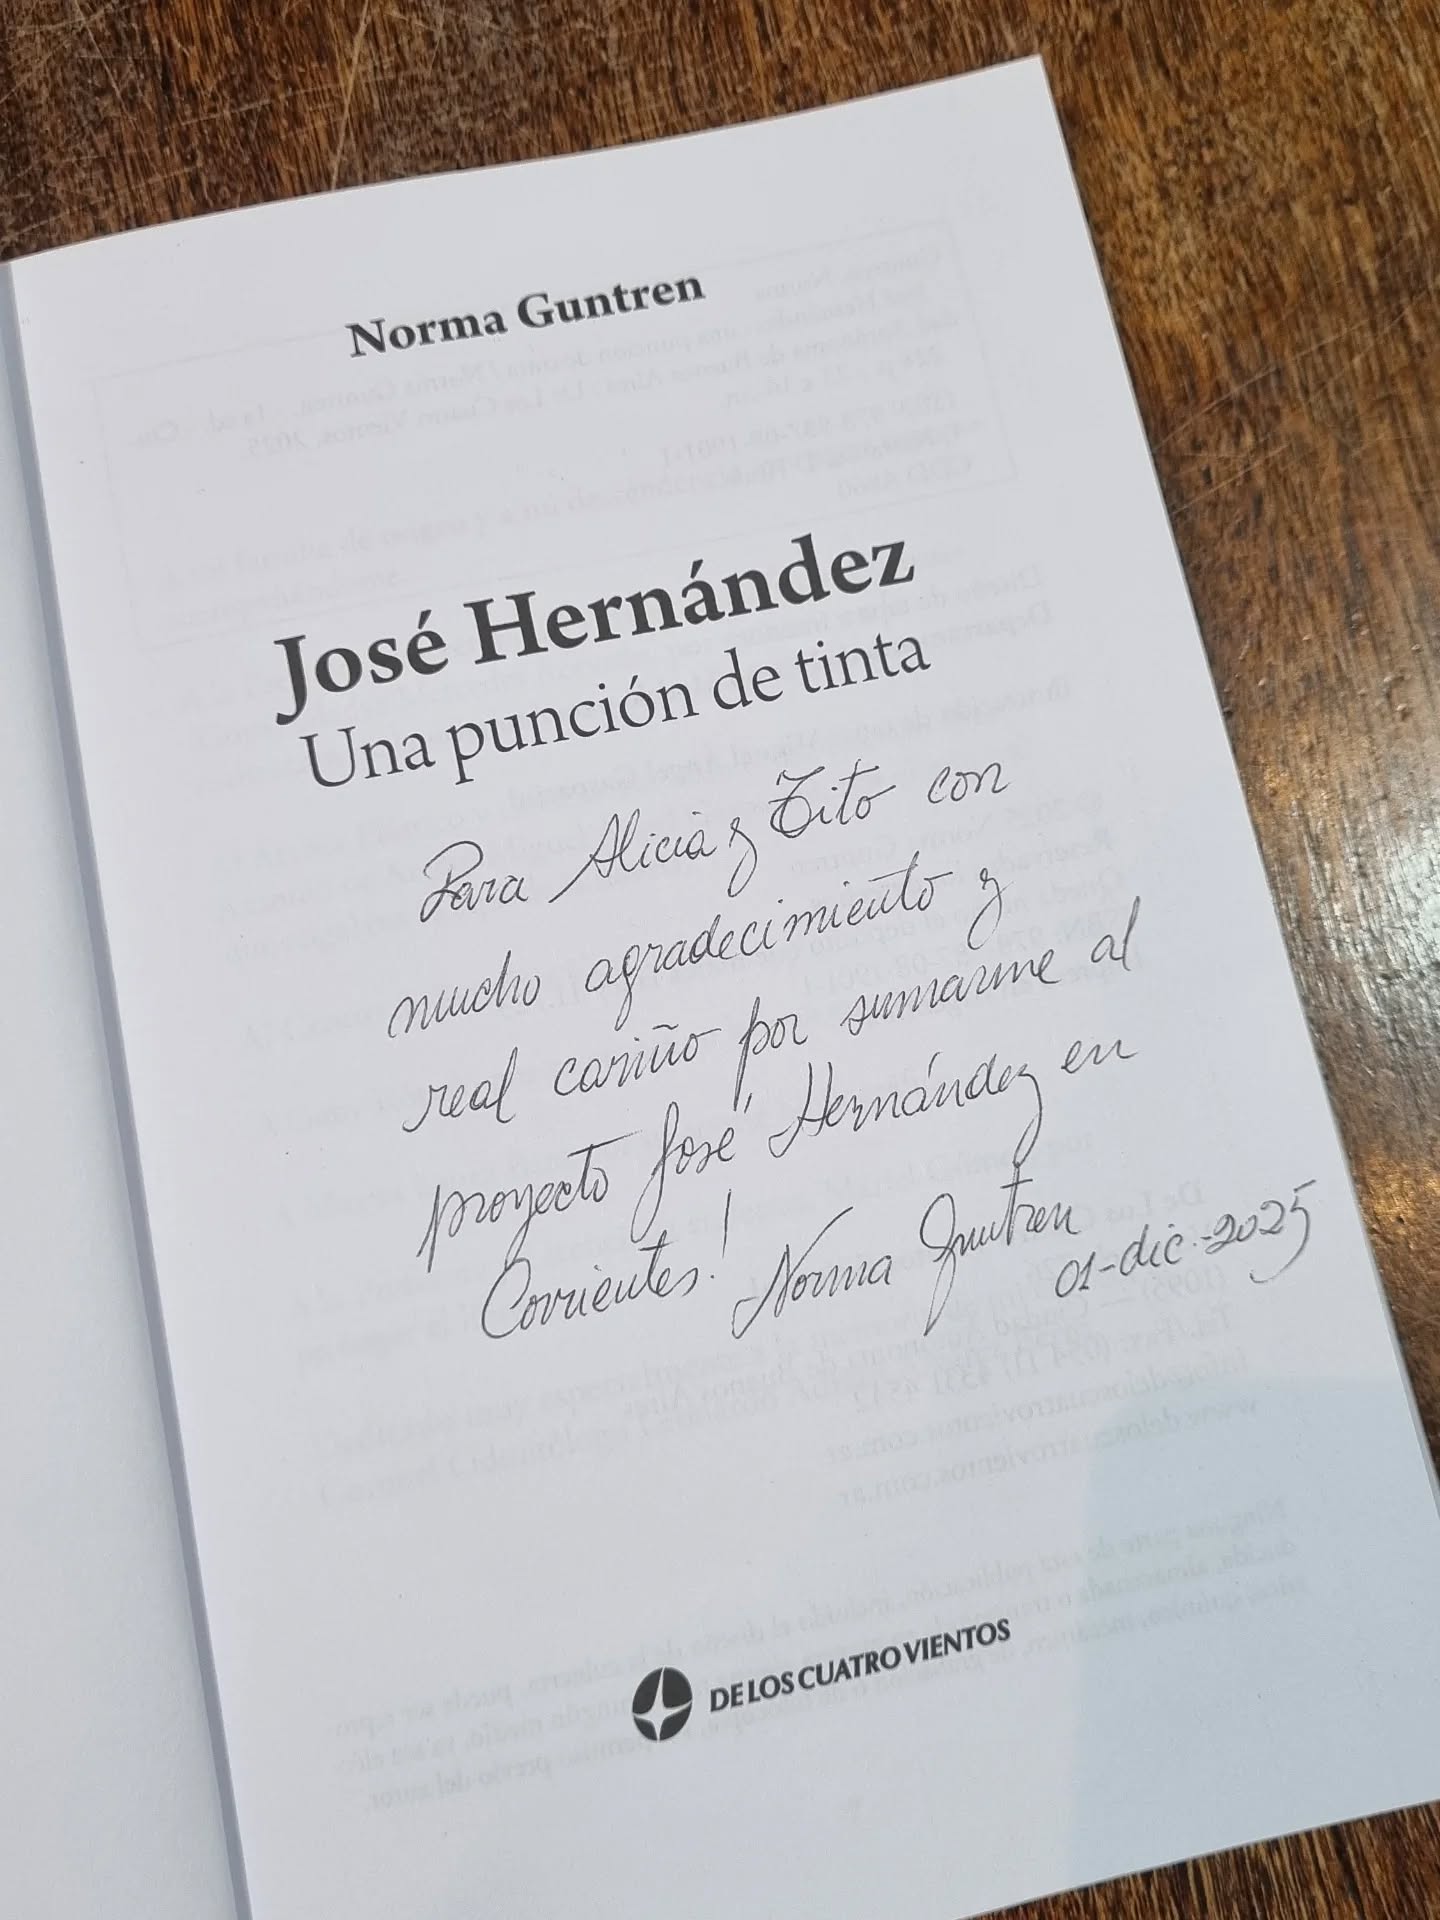 Norma Guntren
José Hernández
Una punción de tinta
Para Alicia y Tito con
mucho agradecimiento y
real cariño por sumarme al
proyecto José Hernández en
Corrientes! Norma Guntren
01-dic.-2025
DE LOS CUATRO VIENTOS